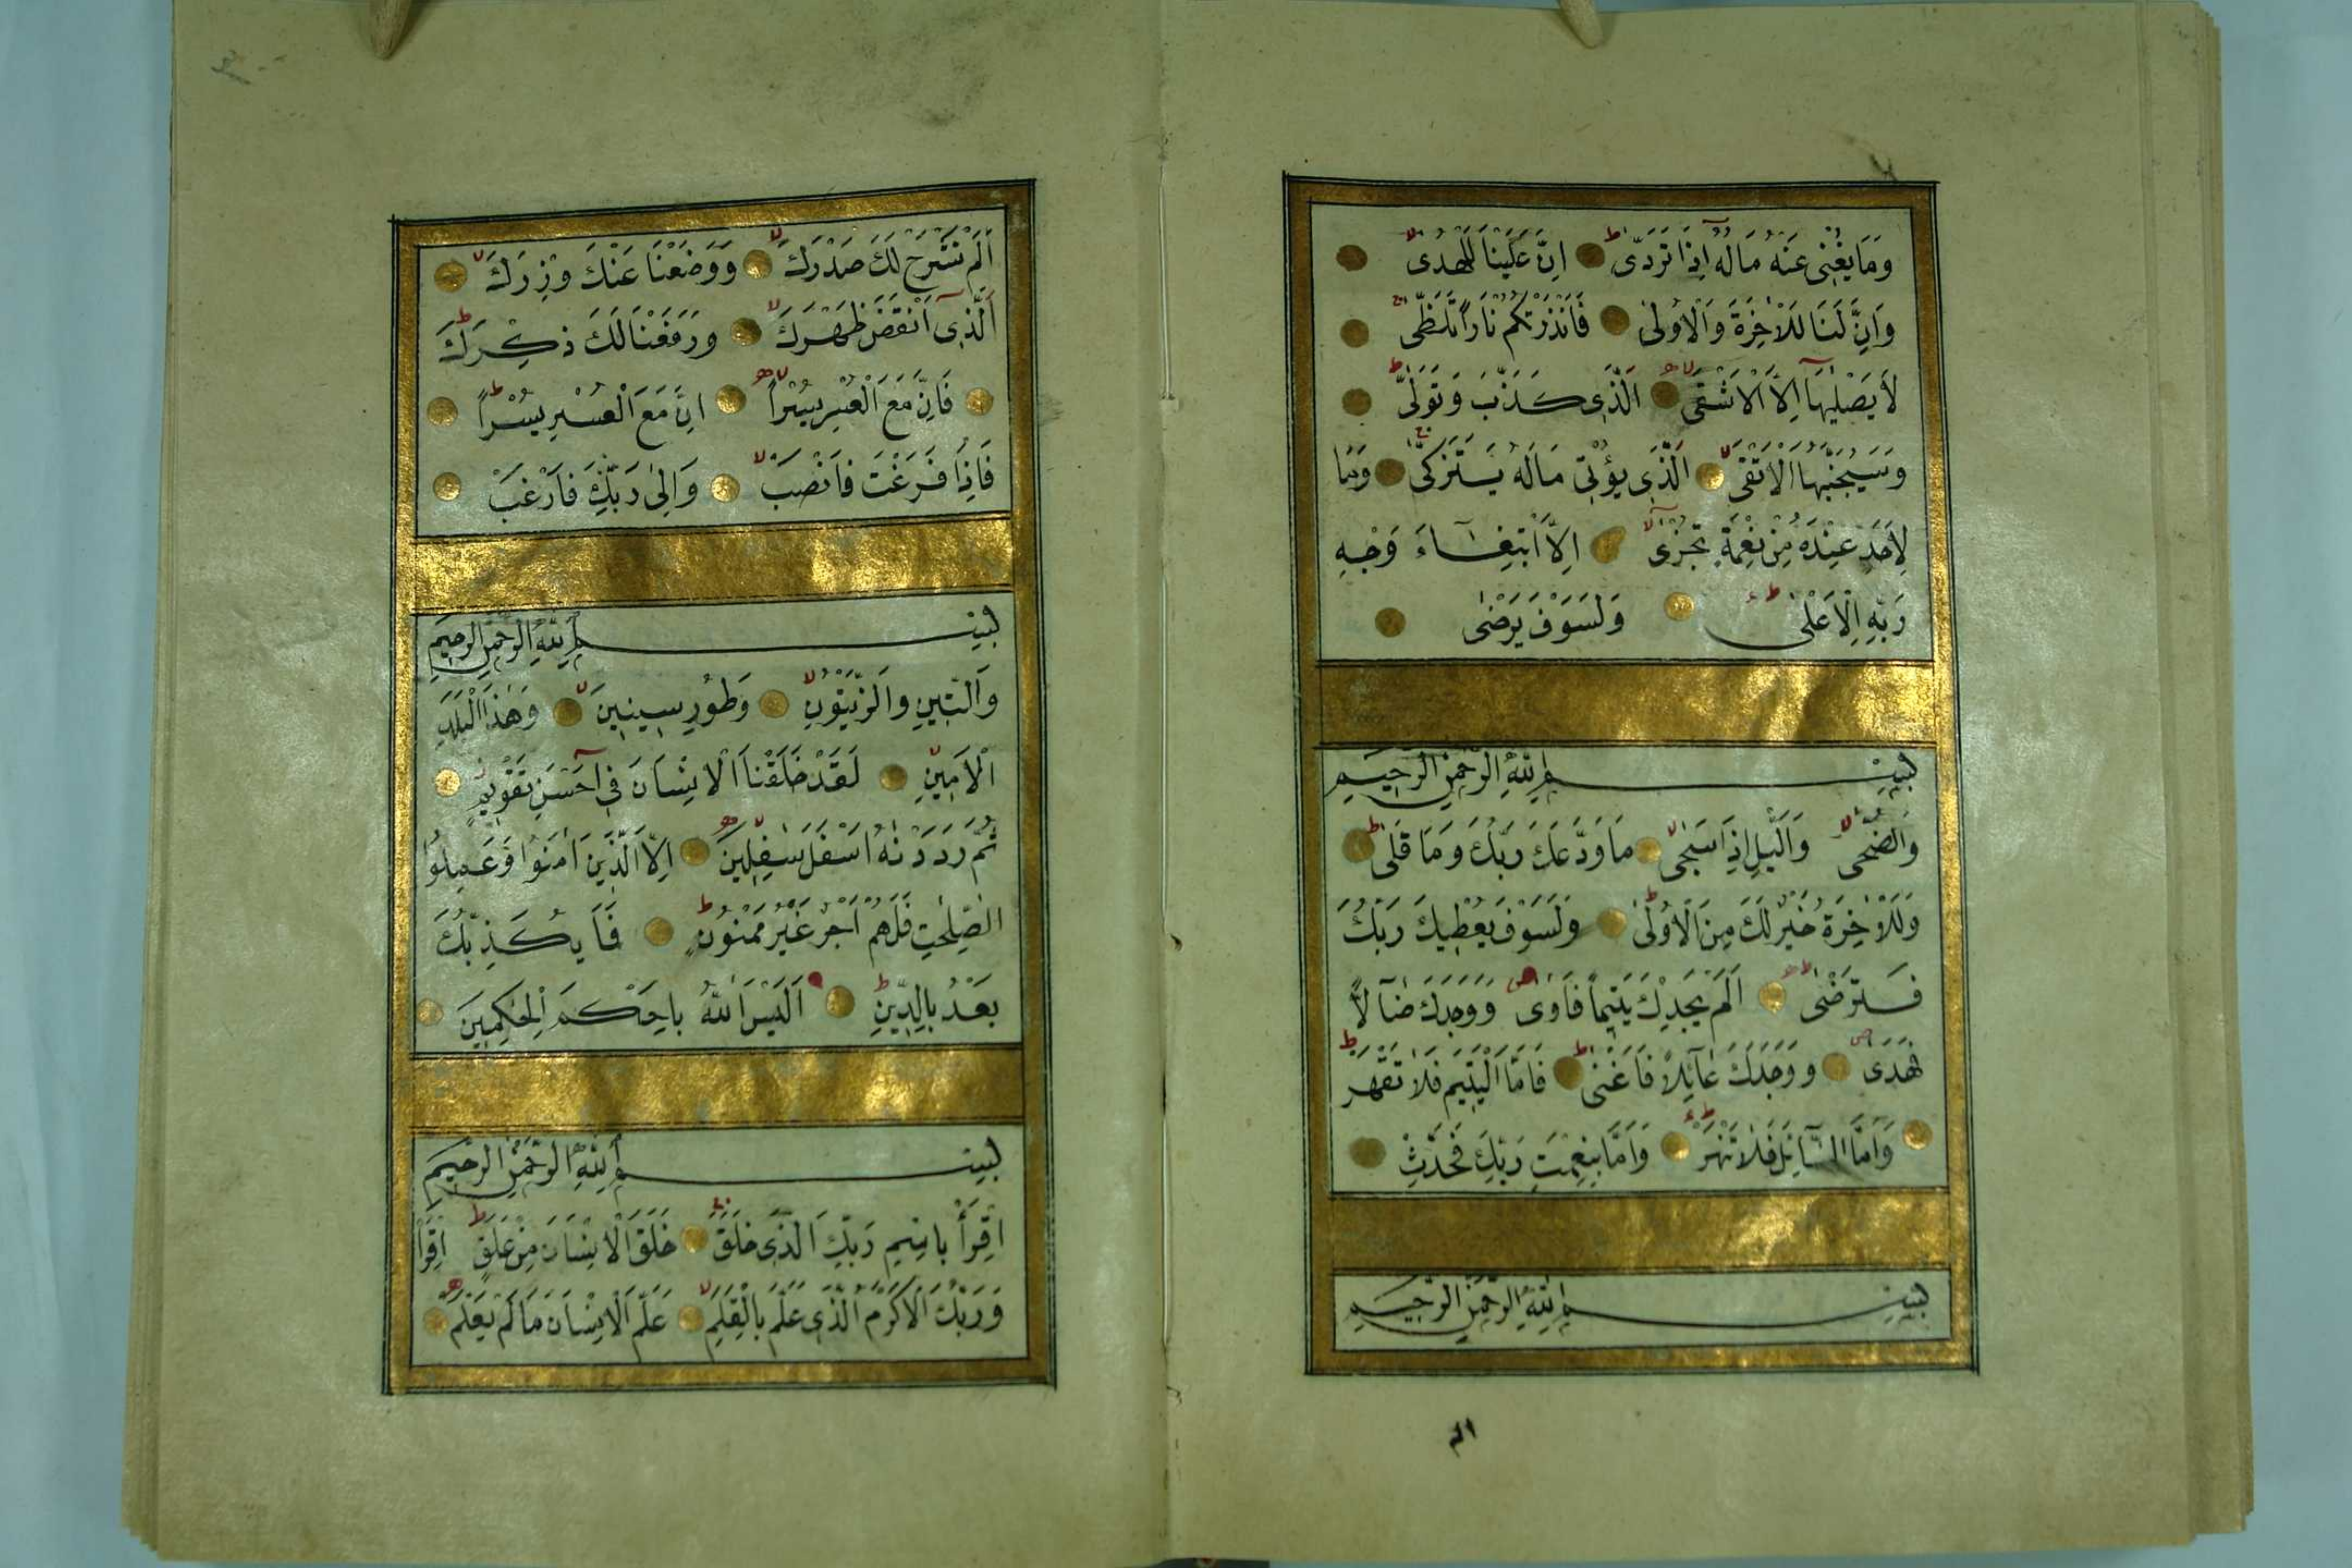 وَمَا يُغْنِى عَنْهُ مَالُهُٓ اِذَا تَرَدّٰى اِنَّ عَلَيْنَا لَلْهُدٰى
وَاِنَّ لَنَا لَلْاٰخِرَةَ وَالْاُولٰى فَاَنْذَرْتُكُمْ نَاراً تَلَظّٰى
لَا يَصْلٰيهَٓا اِلَّا الْاَشْقٰى اَلَّذِى كَذَّبَ وَتَوَلّٰى
وَسَيُجَنَّبُهَا الْاَتْقٰى اَلَّذِى يُؤْتِى مَالَهُ يَتَزَكّٰى وَمَا
لِاَحَدٍ عِنْدَهُ مِنْ نِعْمَةٍ تُجْزٰٓى اِلَّا ابْتِغَٓاءَ وَجْهِ
رَبِّهِ الْاَعْلٰى وَلَسَوْفَ يَرْضٰى
بِسْمِ اللّٰهِ الرَّحْمٰنِ الرَّحِيمِ
وَالضُّحٰى وَالَّيْلِ اِذَا سَجٰى مَا وَدَّعَكَ رَبُّكَ وَمَا قَلٰى
وَلَلْاٰخِرَةُ خَيْرٌ لَكَ مِنَ الْاُولٰى وَلَسَوْفَ يُعْطِيكَ رَبُّكَ
فَتَرْضٰى اَلَمْ يَجِدْكَ يَتِيماً فَاٰوٰى وَوَجَدَكَ ضَٓالّاً
فَهَدٰى وَوَجَدَكَ عَٓائِلاً فَاَغْنٰى فَاَمَّا الْيَتِيمَ فَلَا تَقْهَرْ
وَاَمَّا السَّٓائِلَ فَلَا تَنْهَرْ وَاَمَّا بِنِعْمَتِ رَبِّكَ فَحَدِّثْ
بِسْمِ اللّٰهِ الرَّحْمٰنِ الرَّحِيمِ
الم
اَلَمْ نَشْرَحْ لَكَ صَدْرَكَ وَوَضَعْنَا عَنْكَ وِزْرَكَ
اَلَّذِٓى اَنْقَضَ ظَهْرَكَ وَرَفَعْنَا لَكَ ذِكْرَكَ
فَاِنَّ مَعَ الْعُسْرِ يُسْراً اِنَّ مَعَ الْعُسْرِ يُسْراً
فَاِذَا فَرَغْتَ فَانْصَبْ وَاِلٰى رَبِّكَ فَارْغَبْ
بِسْمِ اللّٰهِ الرَّحْمٰنِ الرَّحِيمِ
وَالتِّينِ وَالزَّيْتُونِ وَطُورِ سِينِينَ وَهٰذَا الْبَلَدِ
الْاَمِينِ لَقَدْ خَلَقْنَا الْاِنْسَانَ فِٓى اَحْسَنِ تَقْوِيمٍ
ثُمَّ رَدَدْنٰهُ اَسْفَلَ سَافِلِينَ اِلَّا الَّذِينَ اٰمَنُوا وَعَمِلُوا
الصّٰلِحٰتِ فَلَهُمْ اَجْرٌ غَيْرُ مَمْنُونٍ فَمَا يُكَذِّبُكَ
بَعْدُ بِالدِّينِ اَلَيْسَ اللّٰهُ بِاَحْكَمِ الْحَاكِمِينَ
بِسْمِ اللّٰهِ الرَّحْمٰنِ الرَّحِيمِ
اِقْرَأْ بِاسْمِ رَبِّكَ الَّذِى خَلَقَ خَلَقَ الْاِنْسَانَ مِنْ عَلَقٍ اِقْرَأْ
وَرَبُّكَ الْاَكْرَمُ الَّذِى عَلَّمَ بِالْقَلَمِ عَلَّمَ الْاِنْسَانَ مَا لَمْ يَعْلَمْ